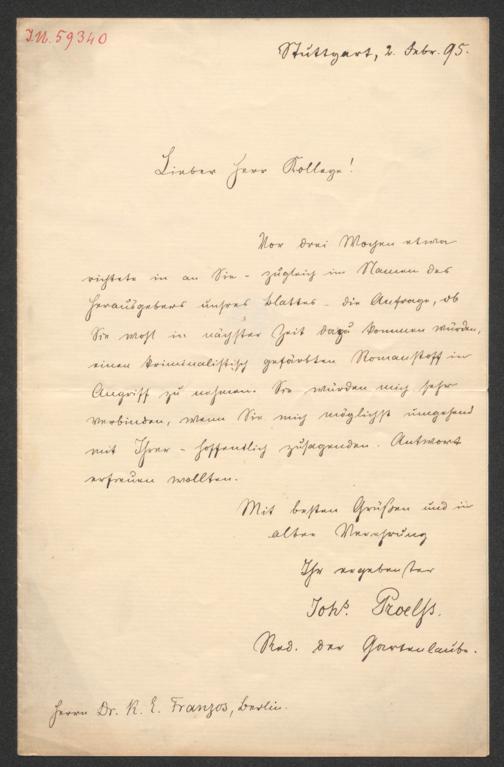 I.N. 59340
Stuttgart, 2. Febr. 95.
Lieber Herr Kollege!
Vor drei Wochen etwa
richtete ich an Sie – zugleich im Namen des
Herausgebers unsres Blattes – die Anfrage, ob
Sie wohl in nächster Zeit dazu kommen würden,
einen kriminalistisch gefärbten Romanstoff in
Angriff zu nehmen. Sie würden mich sehr
verbinden, wenn Sie mich möglichst umgehend
mit Ihrer – hoffentlich zusagenden. Antwort
erfreuen wollten.
Mit besten Grüßen und in
alter Verehrung
Ihr ergebenster
Johs. Proelß.
Red. der Gartenlaube.
Herrn Dr. K. E. Franzos, Berlin.